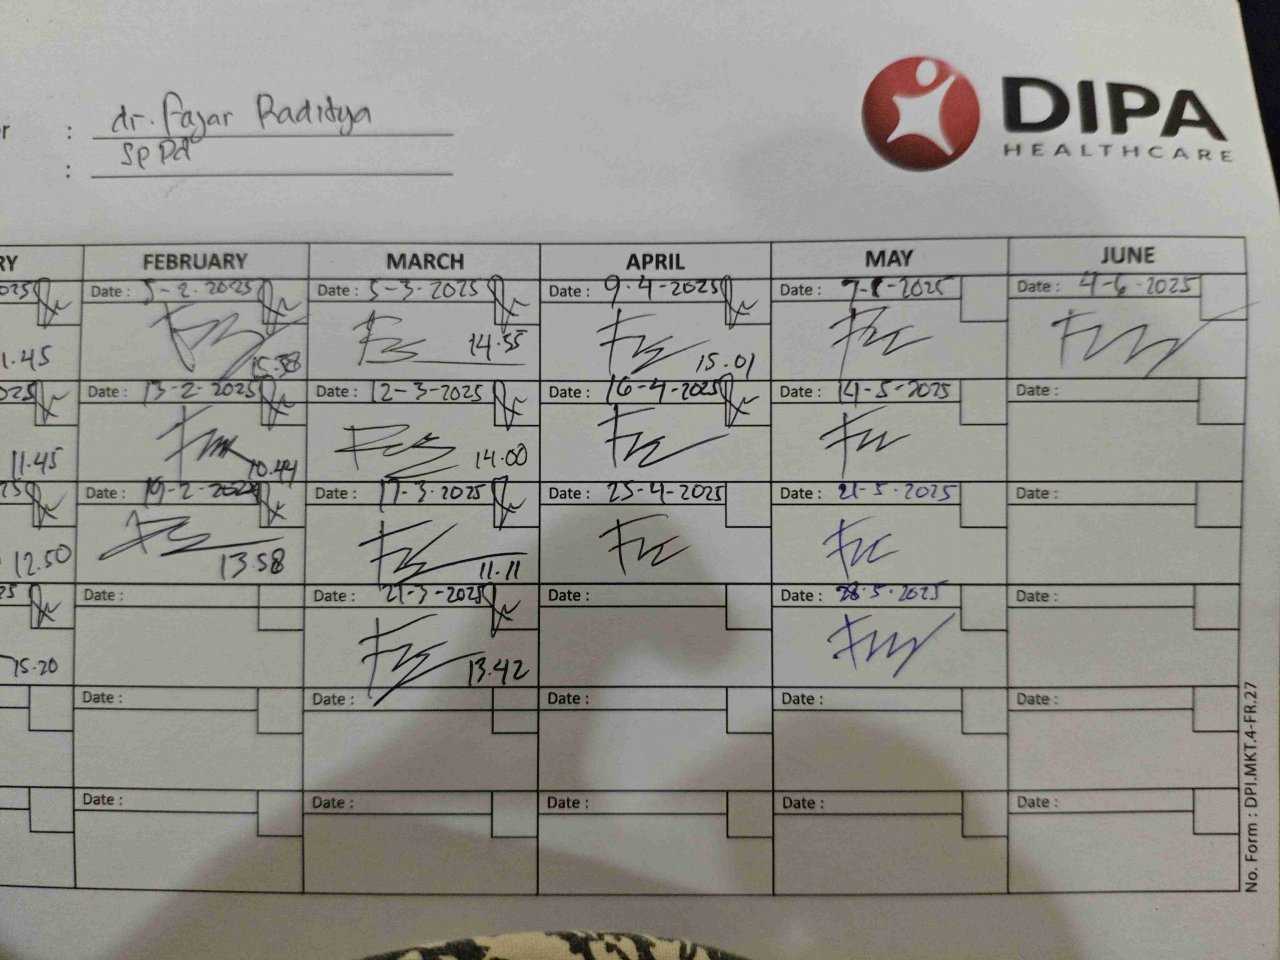 DIPA
HEALTHCARE
r : dr. Fajar Raditya
: Sp Pd
RY FEBRUARY MARCH APRIL MAY JUNE
025 Date : 5-2-2025 Date : 5-3-2025 Date : 9-4-2025 Date : Date : 4-6-2025
1.45 15.38 14.55 15.01
025 Date : 13-2-2025 Date : 12-3-2025 Date : 16-4-2025 Date : 14-5-2025 Date :
11.45 10.44 14.00
25 Date : 19-2-2025 Date : 17-3-2025 Date : 25-4-2025 Date : 21-5-2025 Date :
12.50 13.58 11.11
25 Date : Date : 21-3-2025 Date : Date : 28-5-2025 Date :
15.20 13.42
Date : Date : Date : Date : Date :
Date : Date : Date : Date : Date :
No. Form : DPI.MKT.4-FR.27